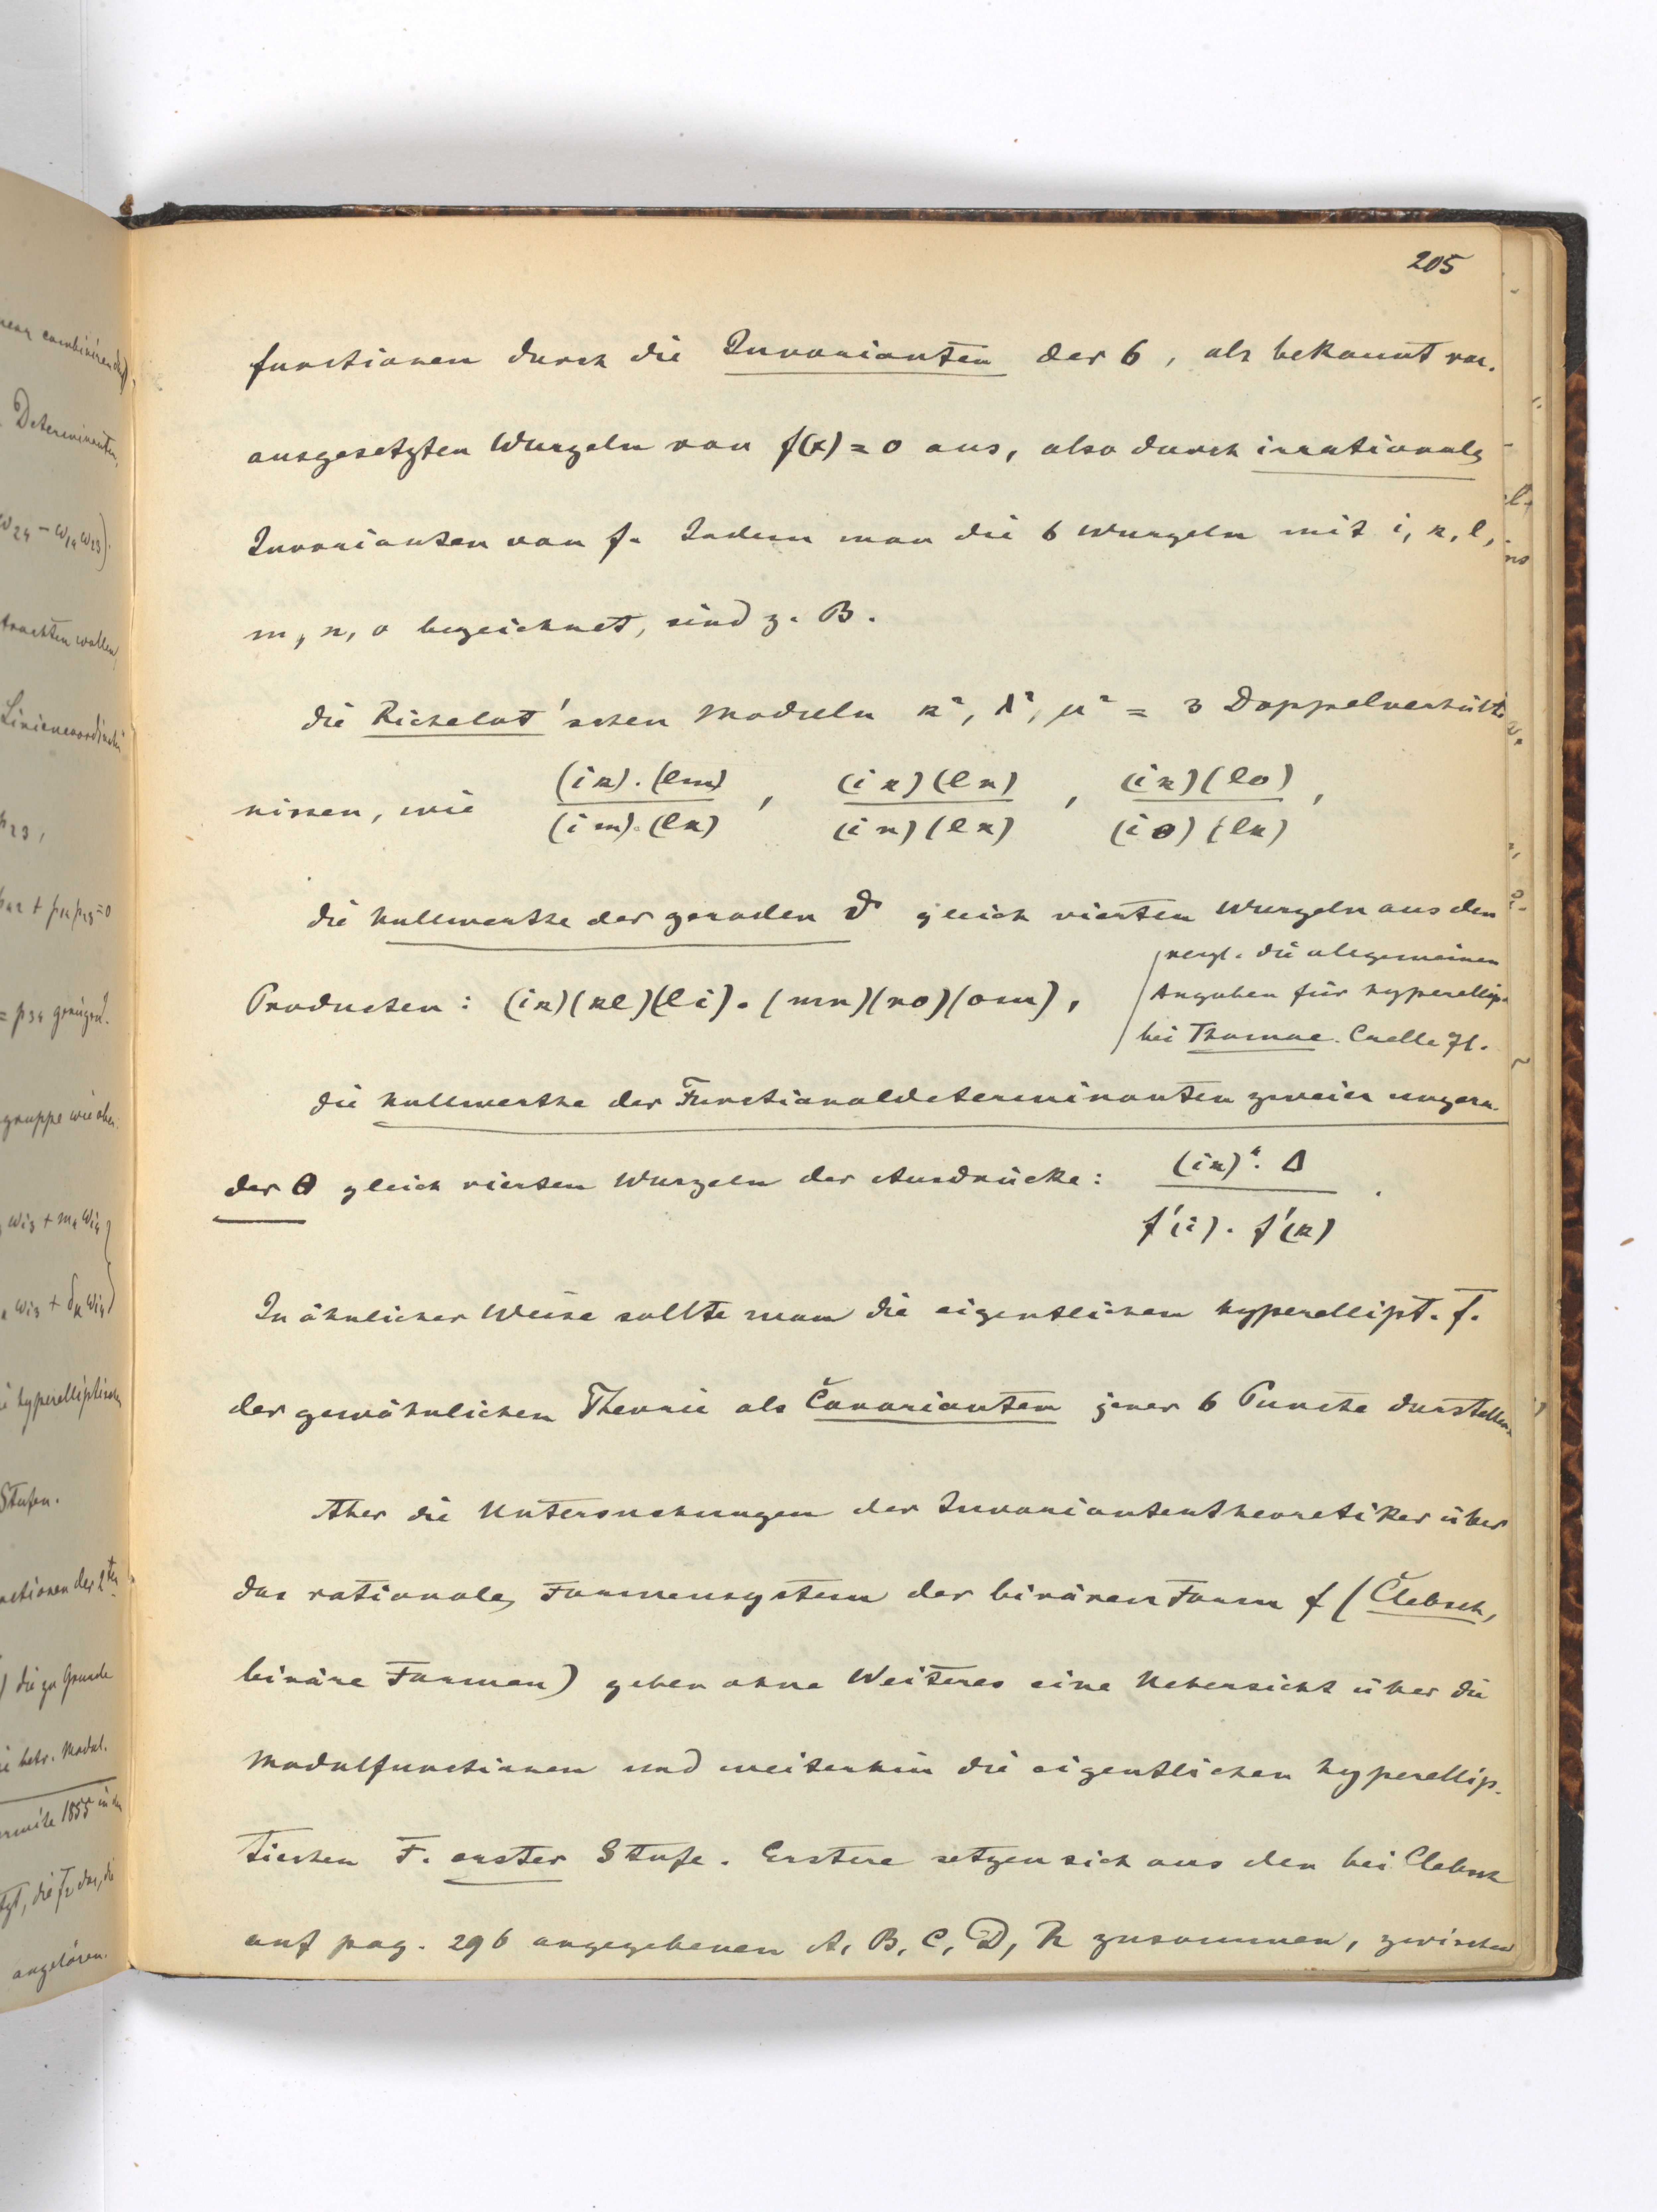 205
functionen durch die Invarianten der 6, als bekannt vor.
ausgesetzten Wurzeln von f(x) = 0 aus, also durch irrationale
Invarianten von f. Indem man die 6 Wurzeln mit i, k, l,
m, n, o bezeichnet, sind z. B.
die Richelot'schen Moduln k², λ², μ² = 3 Doppelverhält
nissen, wie (ik).(lm)/(im).(lk), (ik)(ln)/(in)(lk), (ik)(lo)/(io)(lk),
die Nullwerthe der geraden ϑ gleich vierten Wurzeln aus den
Producten: (ik)(kl)(li).(mn)(no)(om),
vergl. die allgemeinen
Angaben für hyperellip.
bei Thomae. Crelle 71.
die Nullwerthe der Functionaldeterminanten zweier ungera.
der θ gleich vierten Wurzeln der Ausdrücke: (ik)⁴. Δ / f'(i). f'(k).
In ähnlicher Weise sollte man die eigentlichen hyperellipt. f.
der gewöhnlichen Theorie als Covarianten jener 6 Puncte darstellen.
Aber die Untersuchungen der Invariantentheoretiker über
das rationale Formensystem der binären Form f (Clebsch,
binäre Formen) geben ohne Weiteres eine Uebersicht über die
Modulfunctionen und weiterhin die eigentlichen hyperellip.
tischen F. erster Stufe. Erstere setzen sich aus den bei Clebsch
auf pag. 296 angegebenen A, B, C, D, R zusammen, zwischen